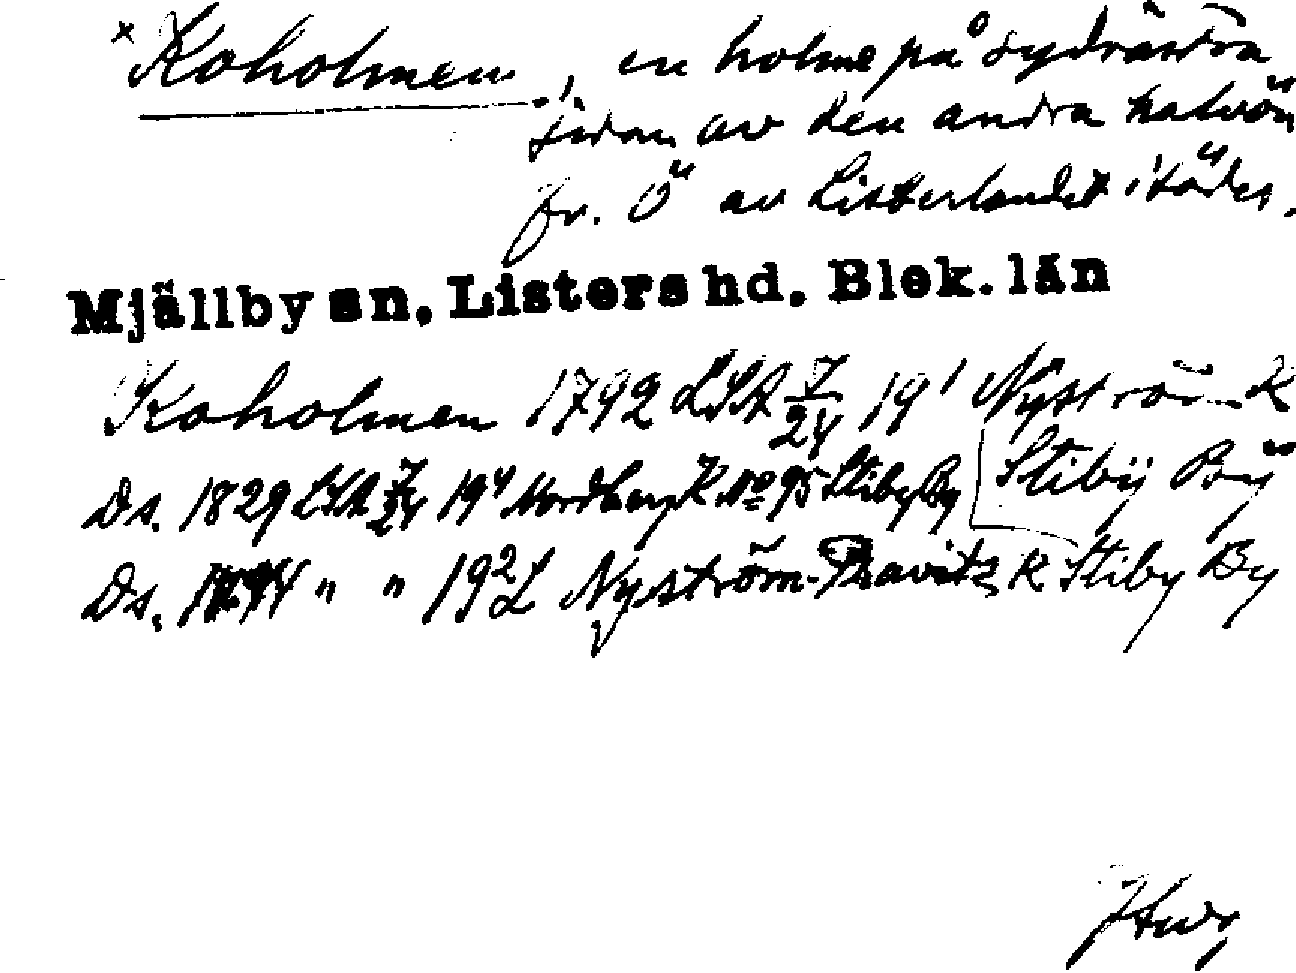 × Koholmen, en holme på sydvästra
sidan av den andra halvön
fr. Ö av Listerlandet i söder.
Mjällby sn, Listers hd. Blek. län
Koholmen 1792 LSA 7/24 19¹ Nyström K
Stiby By
Ds. 1829 LSA 7/24 19⁴ Nordberg K No 95 Stiby By
Ds. " " 19² L Nyström-Pravitz K Stiby By